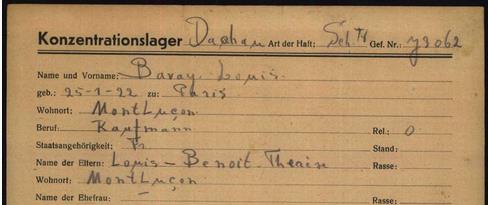 Konzentrationslager Dachau Art der Haft: Sch. Fr Gef. Nr.: 73062
Name und Vorname: Baray Louis
geb.: 25-1-22 zu: Paris
Wohnort: MontLuçon
Beruf: Kaufmann Rel.: O
Staatsangehörigkeit: Fr Stand:
Name der Eltern: Louis - Benoit. Rasse:
Wohnort: MontLuçon
Name der Ehefrau: — Rasse: